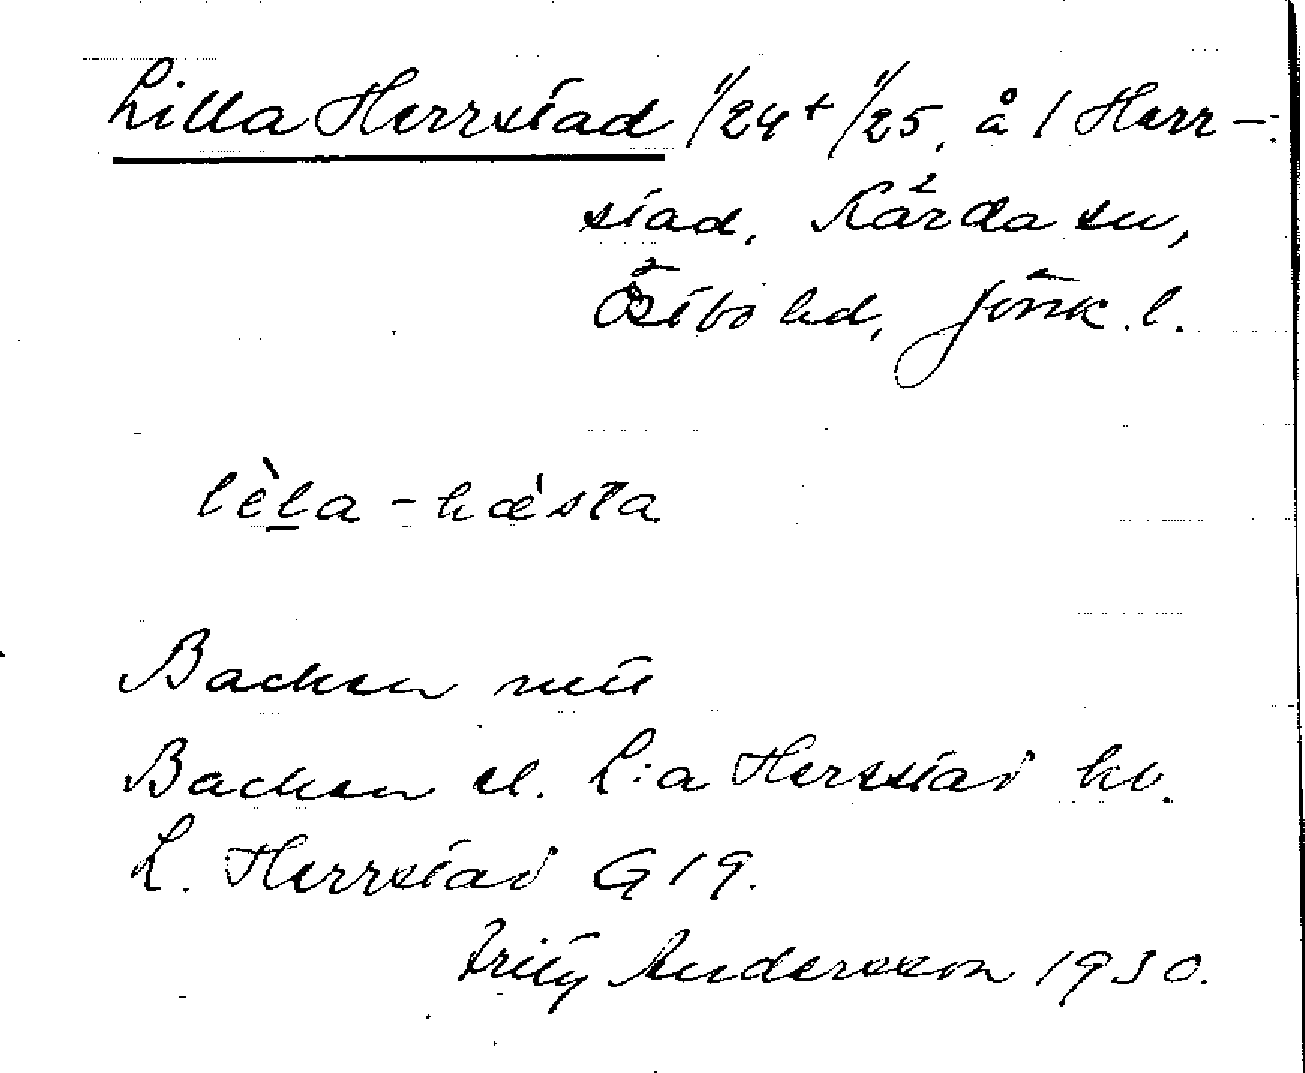 Lilla Herrstad 1/24 + 1/25, å 1 Herr-
stad, Kärda sn,
Östbo hd, Jönk. l.
lèla - hǽsta
Backen
Backen el. L:a Herrstad hv.
L. Herrstad G 19.
Fritz Andersson 1930.